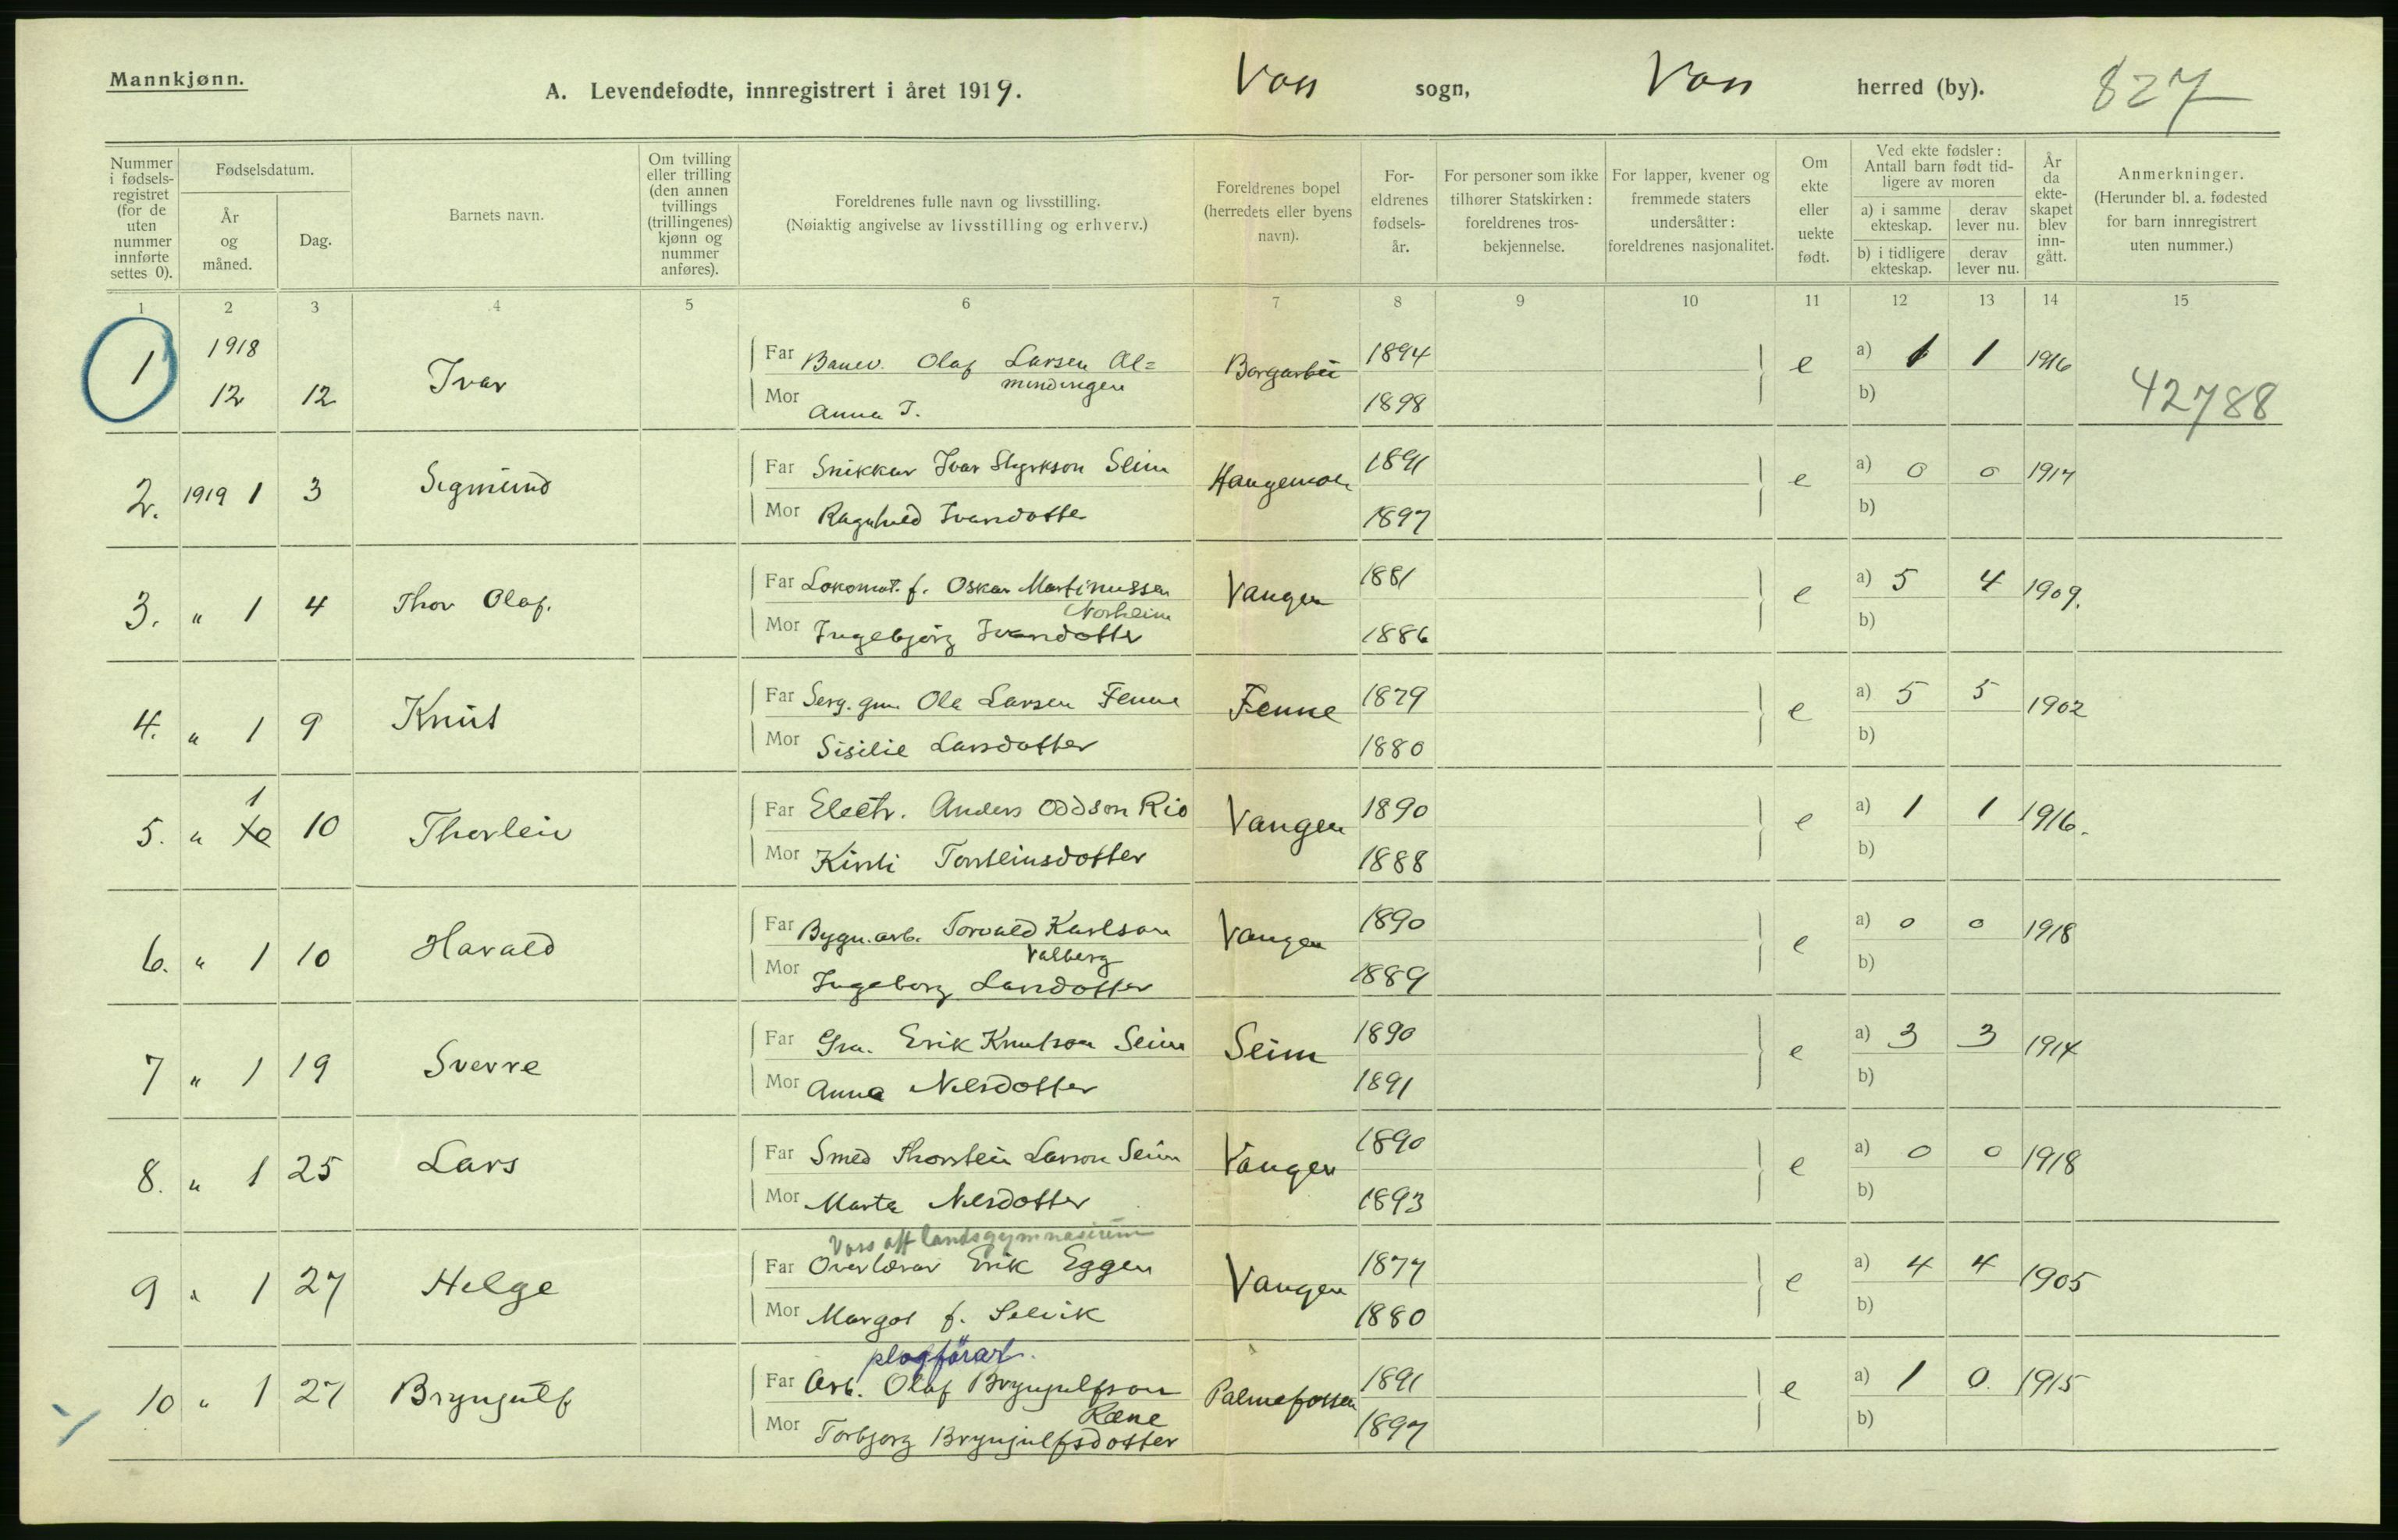 Mannkjønn.
A. Levendefødte, innregistrert i året 1919.
Voss sogn,
Voss herred (by).
827
Nummer i fødsels-registret (for de uten nummer innførte settes 0).
Fødselsdatum.
År og måned.
Dag.
Barnets navn.
Om tvilling eller trilling (den annen tvillings (trillingenes) kjønn og nummer anføres).
Foreldrenes fulle navn og livsstilling.
(Nøiaktig angivelse av livsstilling og erhverv.)
Foreldrenes bopel (herredets eller byens navn).
For-eldrenes fødsels-år.
For personer som ikke tilhører Statskirken: foreldrenes tros-bekjennelse.
For lapper, kvener og fremmede staters undersåtter: foreldrenes nasjonalitet.
Om ekte eller uekte født.
Ved ekte fødsler: Antall barn født tid-ligere av moren
a) i samme ekteskap.
derav lever nu.
b) i tidligere ekteskap.
derav lever nu.
År da ekte-skapet blev inn-gått.
Anmerkninger.
(Herunder bl. a. fødested for barn innregistrert uten nummer.)
1 2 3 4 5 6 7 8 9 10 11 12 13 14 15
1 1918 12 12 Ivar
Far Banev. Olaf Larsen Al=mindingen 1894 e a) 1 1 1916
Mor Anna I. 1898 b)
42788
2. 1919 1 3 Sigmund
Far Snikkar Ivar Styrkson Seim 1891 e a) 0 0 1917
Mor Ragnhild Ivarsdotter 1897 b)
3. " 1 4 Thor Olaf.
Far Lokomot. f. Oskar Martinussen Norheim Vangen 1881 e a) 5 4 1909.
Mor Ingebjørg Ivarsdotter 1886 b)
4. " 1 9 Knut
Far Serg. gm. Ola Larsen Fenne Fenne 1879 e a) 5 5 1902
Mor Sisilie Larsdotter 1880 b)
5. " 1 10 Thorlein
Far Electr. Anders Oddson Rio Vangen 1890 e a) 1 1 1916.
Mor Kirsti Torsteinsdotter 1888 b)
6. " 1 10 Harald
Far Bygn. arb. Torvald Karlson Valberg Vangen 1890 e a) 0 0 1918
Mor Ingeborg Larsdotter 1889 b)
7 " 1 19 Sverre
Far Gra. Erik Knutson Seim Seim 1890 e a) 3 3 1914
Mor Anna Nilsdotter 1891 b)
8. " 1 25 Lars
Far Smed Thorstein Larson Seim Vangen 1890 e a) 0 0 1918
Mor Marta Nilsdotter 1893 b)
Voss off landsgymnasium
9 " 1 27 Helge
Far Overlærar Erik Eggen Vangen 1877 e a) 4 4 1905
Mor Margot f. Selvik 1880 b)
plogförar.
10 " 1 27 Brynjulf
Far Arb. Olaf Brynjulfson Rene Palmafossen 1891 e a) 1 0. 1915
Mor Torbjørg Brynjulfsdotter 1897 b)